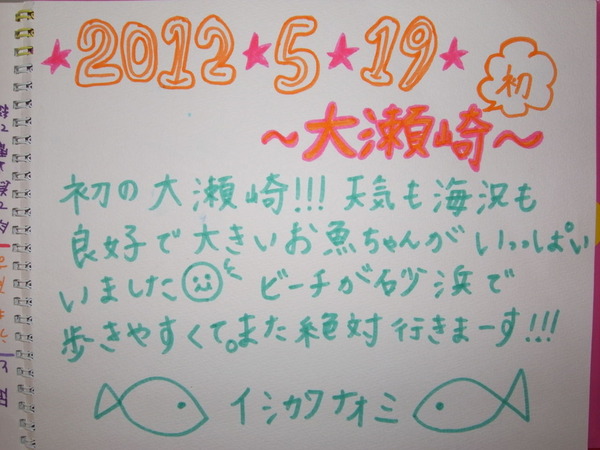 ★2012★5★19★
初
～大瀬崎～
初の大瀬崎!!! 天気も海況も
良好で大きいお魚ちゃんがいっぱい
いました ビーチが砂浜で
歩きやすくて。また絶対行きまーす!!!
イシカワナオミ